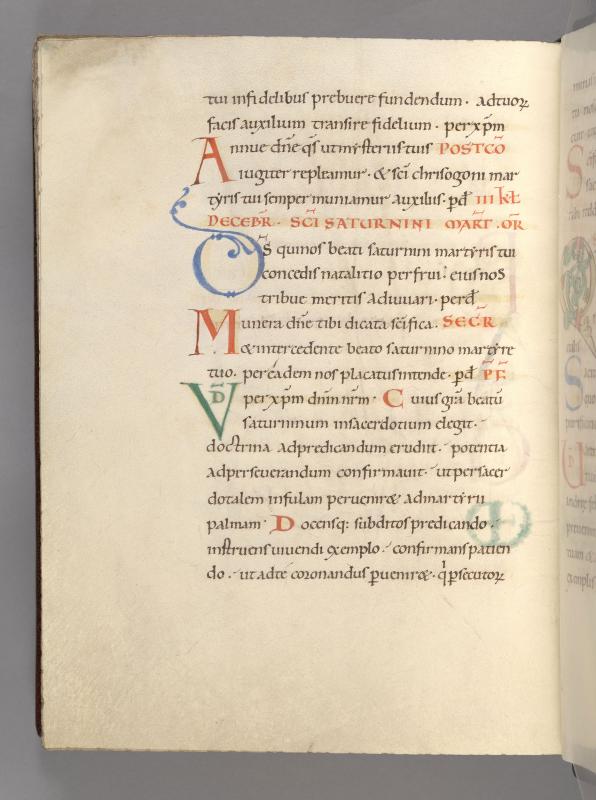 tui infidelibus prebuere fundendum · adtuoꝝ
facis auxilium transire fidelium · perxp̄m
Annue dn̄e qs̄ utmysteriistuis POSTCŌ
iugiter repleamur · & sc̄i chrisogoni mar
tyris tui semper muniamur auxiliis · ꝑd̄ III kƚ
DECEBR̄ · SC̄I SATURNINI MART̄ · OR̄
DS̄ quinos beati saturnini martyris tui
concedis natalitio perfrui : eius nos
tribue meritis adiuuari · perd̄
Munera dn̄e tibi dicata sc̄ifica · SECR̄
& intercedente beato saturnino martyre
tuo · pereadem nos placatus intende · ꝑd̄ P̄F̄
VD̄ perxp̄m dnm̄ nrm̄ · Cuius gr̄a beatū
saturninum insacerdotium elegit ·
doctrina adpredicandum erudiit · potentia
adperseuerandum confirmauit · ut persacer
dotalem infulam perueniret admartyrii
palmam · Docensq: subditos predicando ·
instruens uiuendi exemplo · confirmans patien
do · ut adte coronandus ꝑueniret · qͥ ꝑsecutoꝝ